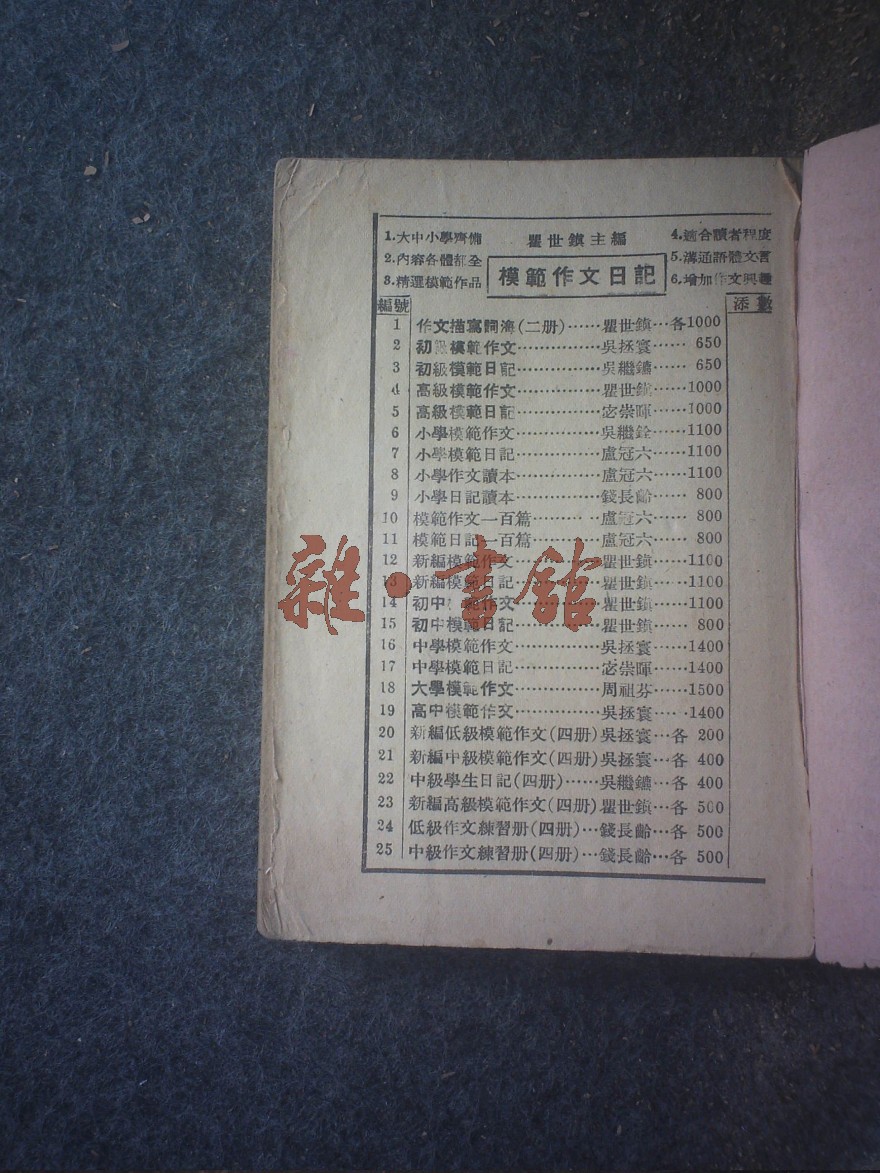 1.大中小學齊備
2.內容各體都全
3.精選模範作品
瞿世鎮主編
模範作文日記
4.適合讀者程度
5.溝通語體文言
6.增加作文興趣
編號 添數
1 作文描寫詞海(二册)……瞿世鎮…各1000
2 初級模範作文…………吳拯寰…… 650
3 初級模範日記…………吳繼鑣…… 650
4 高級模範作文…………瞿世鎮……1000
5 高級模範日記…………宓崇暉……1000
6 小學模範作文…………吳繼銓……1100
7 小學模範日記…………盧冠六……1100
8 小學作文讀本…………盧冠六……1100
9 小學日記讀本…………錢長齡…… 800
10 模範作文一百篇…………盧冠六…… 800
11 模範日記一百篇…………盧冠六…… 800
12 新編模範作文…………瞿世鎮……1100
13 新編模範日記…………瞿世鎮……1100
14 初中模範作文…………瞿世鎮……1100
15 初中模範日記…………瞿世鎮…… 800
16 中學模範作文…………吳拯寰……1400
17 中學模範日記…………宓崇暉……1400
18 大學模範作文…………周祖芬……1500
19 高中模範作文…………吳拯寰……1400
20 新編低級模範作文(四册)吳拯寰…各 200
21 新編中級模範作文(四册)吳拯寰…各 400
22 中級學生日記(四册)……吳繼鑣…各 400
23 新編高級模範作文(四册)瞿世鎮…各 500
24 低級作文練習册(四册)…錢長齡…各 500
25 中級作文練習册(四册)…錢長齡…各 500
雜·書館